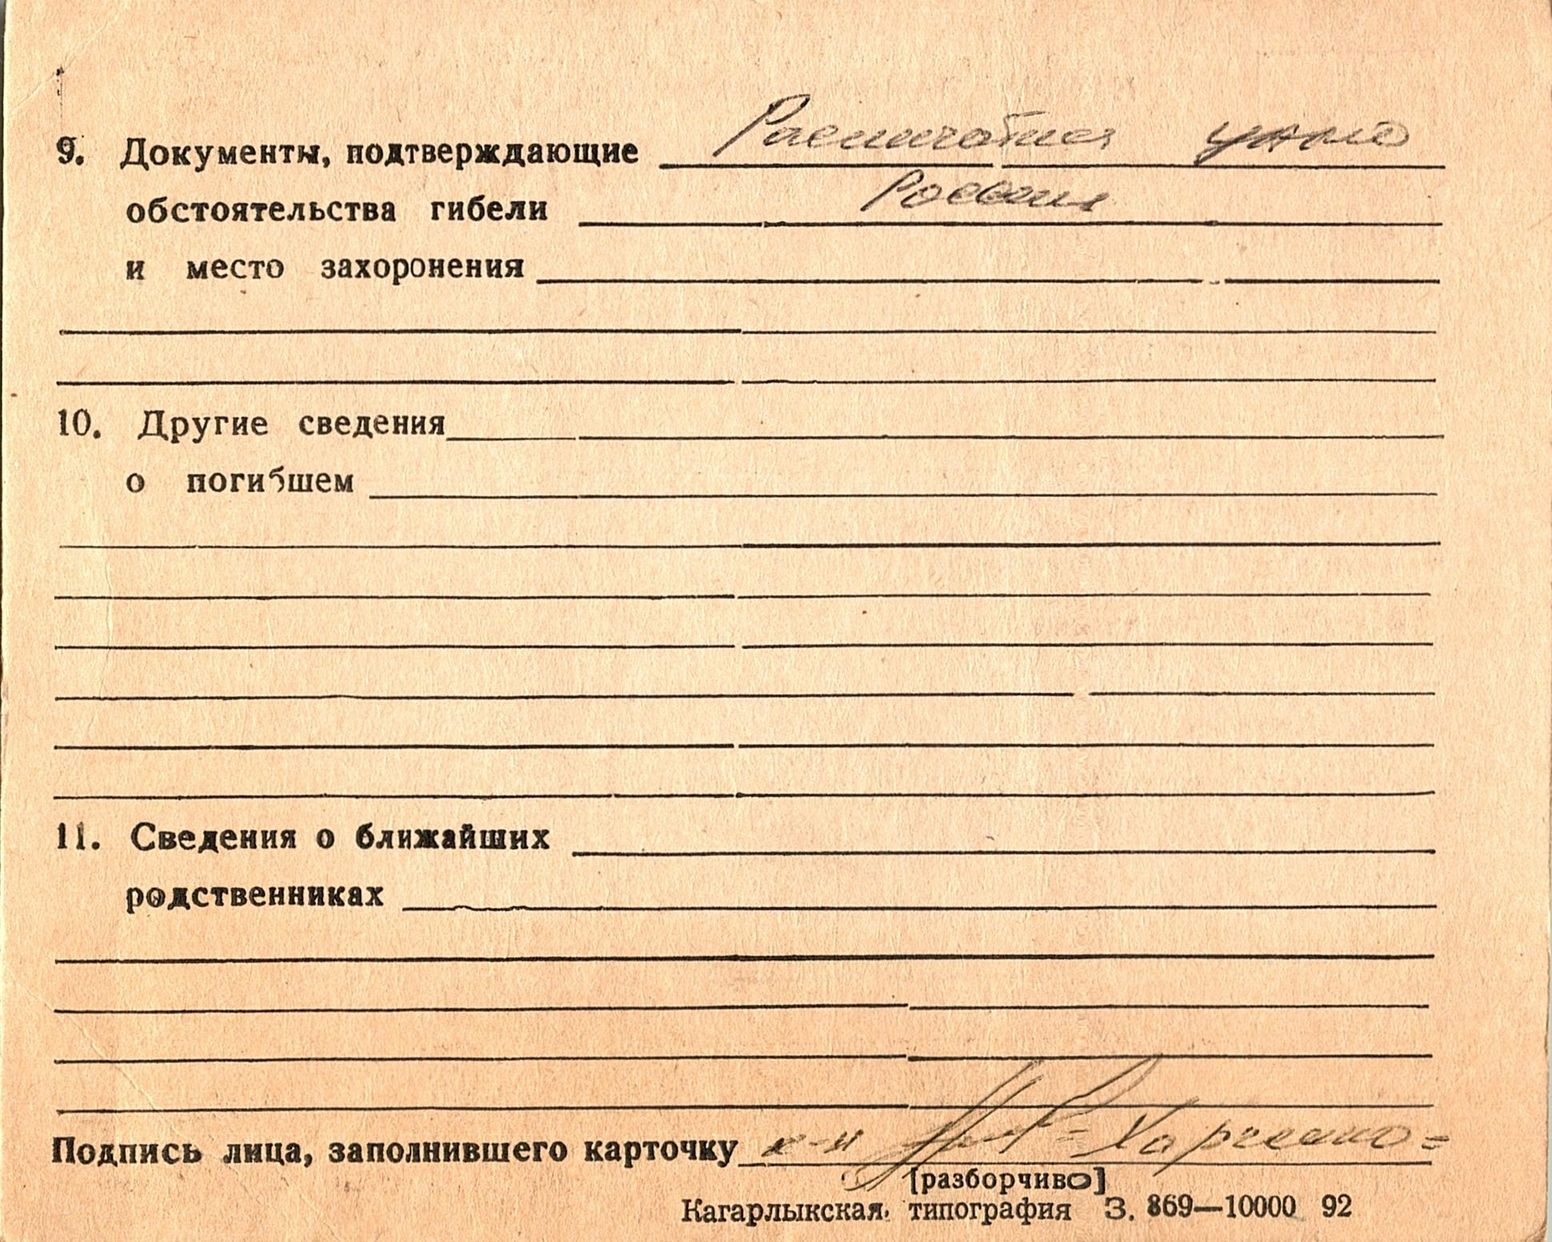 9. Документы, подтверждающие Распечатка
обстоятельства гибели России
и место захоронения
10. Другие сведения
о погибшем
11. Сведения о ближайших
родственниках
Подпись лица, заполнившего карточку к-н =Харченко=
[разборчиво]
Кагарлыкская типография З. 869—10000 92